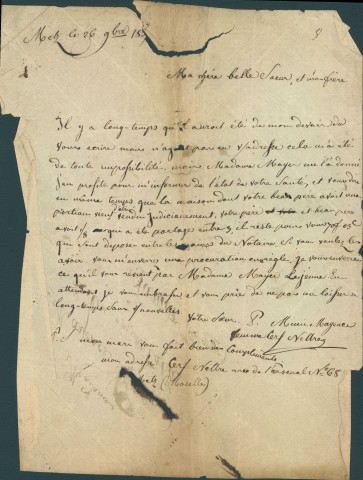 Metz le 26 9bre 18
Ma chère belle Soeur, et mon frère
Il y a long-temps qu'il auroit été de mon devoir de
vous ecrire mais n'ayant pas eu l'adresse cela m'a été
de toute improssibilité, mais Madame Mayer me l'a donné
j'en profite pour m'informer de l'état de votre Santé, et vous dire
en même temps que la maison dont votre beau père avait une
portion veuf vendu judiciairement, votre père et beau père
avait qui a été partagé entre 3, il reste pour vous
qui sont deposer entre les mains du Notaire. Si vous voulez les
avoir, vous m'enverrez une procuration en règle, je vous enverrai
ce qu'il vous revient par Madame Mayer Lajeune En
attendant je vous embrasse et vous prie de ne pas me laisser
long-temps Sans nouvelles
Votre Soeur
Cerf Nettre
mon mari vous fait bien des Compliments
mon adresse Cerf Nettre rue de l'arsenal No 68
Metz (Moselle)